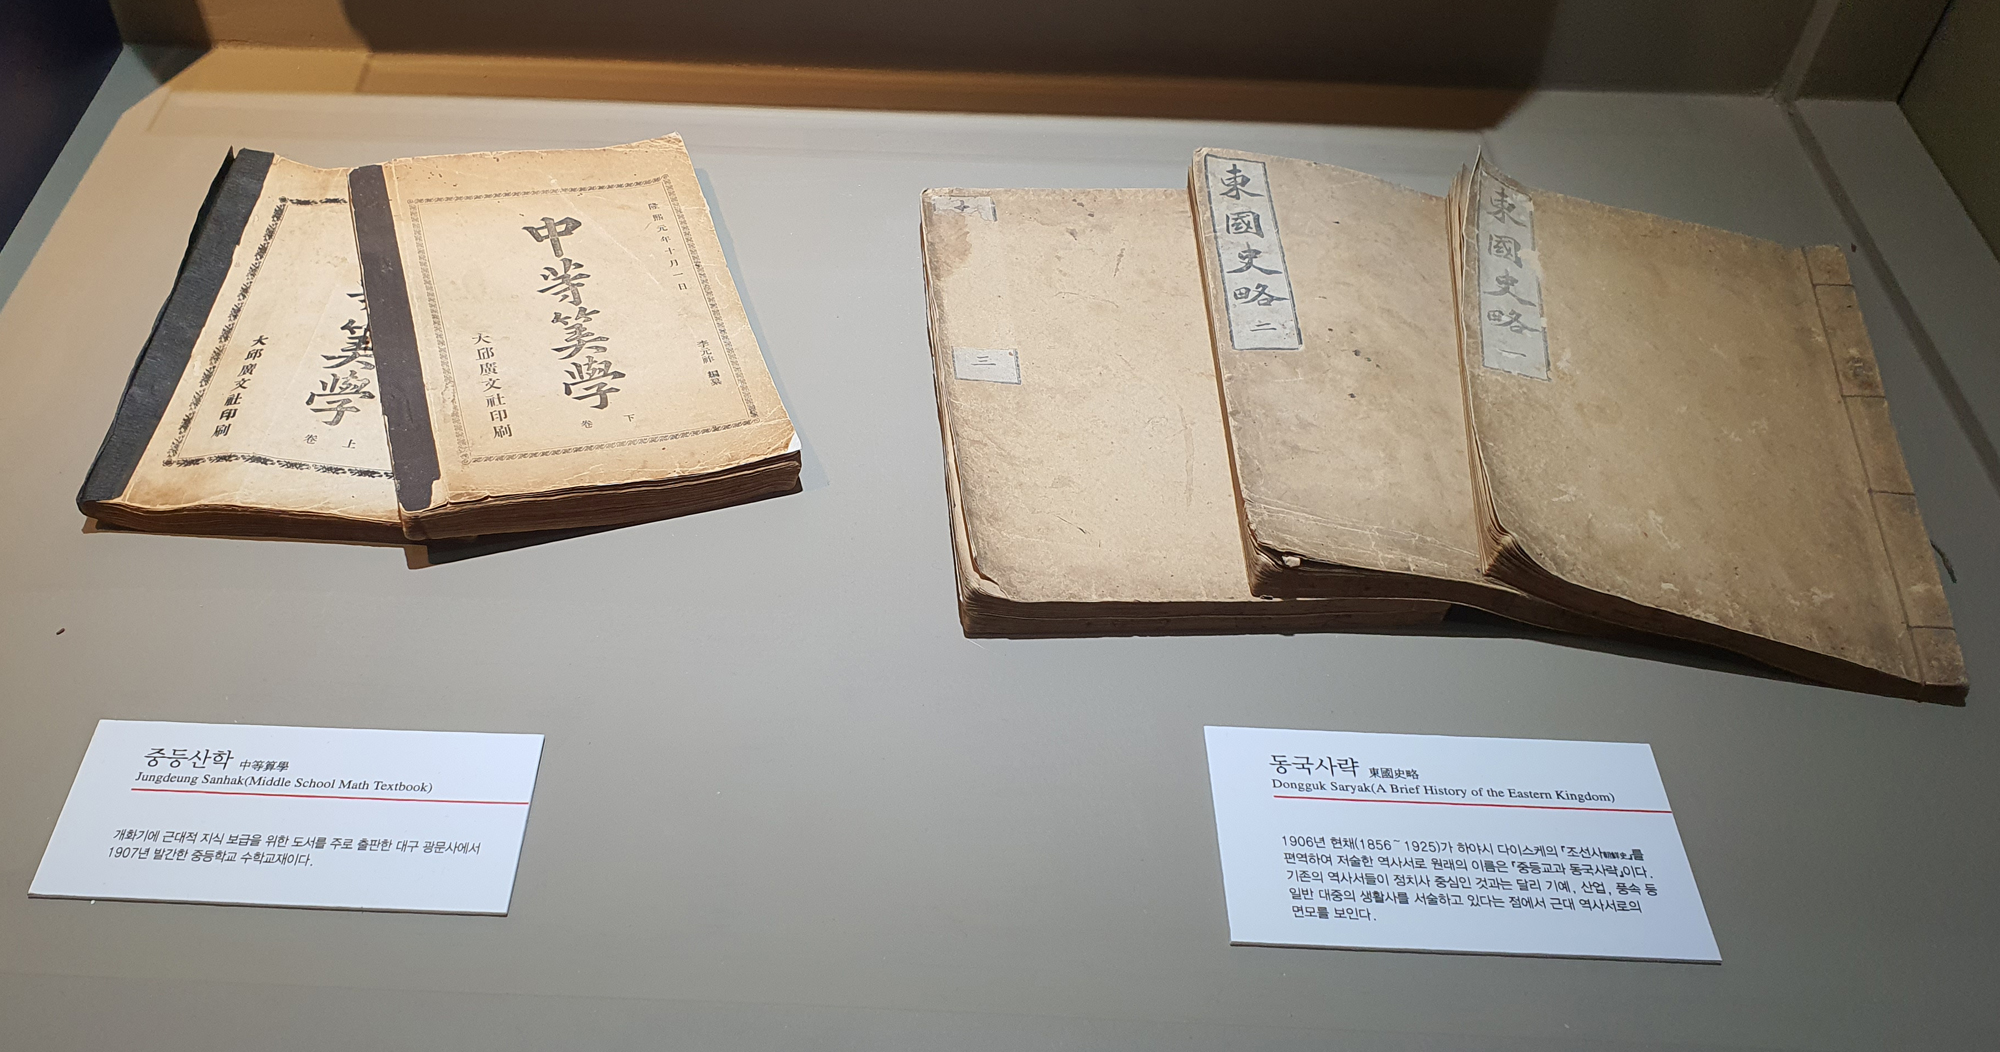 隆熙元年十月一日
中等筭學
卷 下
李元祚 編纂
大邱廣文社印刷
筭學
卷 上
大邱廣文社印刷
三
東國史略 二
東國史略 一
중등산학 中等算學
Jungdeung Sanhak(Middle School Math Textbook)
개화기에 근대적 지식 보급을 위한 도서를 주로 출판한 대구 광문사에서
1907년 발간한 중등학교 수학교재이다.
동국사략 東國史略
Dongguk Saryak(A Brief History of the Eastern Kingdom)
1906년 현채(1856~1925)가 하야시 다이스케의 『조선사朝鮮史』를
편역하여 저술한 역사서로 원래의 이름은 『중등교과 동국사략』이다.
기존의 역사서들이 정치사 중심인 것과는 달리 기예, 산업, 풍속 등
일반 대중의 생활사를 서술하고 있다는 점에서 근대 역사서로의
면모를 보인다.